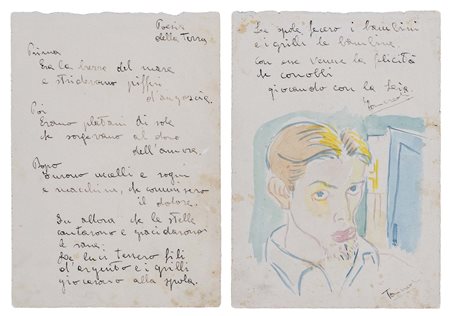 Poesia
della Terra
Prima
Era la barra del mare
e stridevano
d'angoscia.
Poi
Erano platani di sole
che sorgevano al dono
dell'amore.
Dopo
Furono uccelli e sogni
e macchine, che
il dolore.
Fu allora che le stelle
cantarono e gracidarono
le rane:
Le luci tessero fili
d'argento e i grilli
giocarono alla spola.
La spola fecero i bambini
e i grilli le bambine
con me venne la felicità
che conobbi
giocando con la